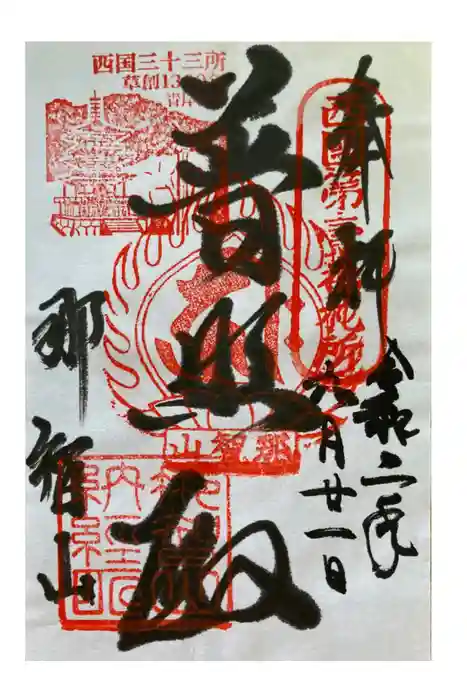 奉拝
西国第一番札所
令和二年
六月廿一日
西国三十三所
草創13
普照殿
那智山
那智山